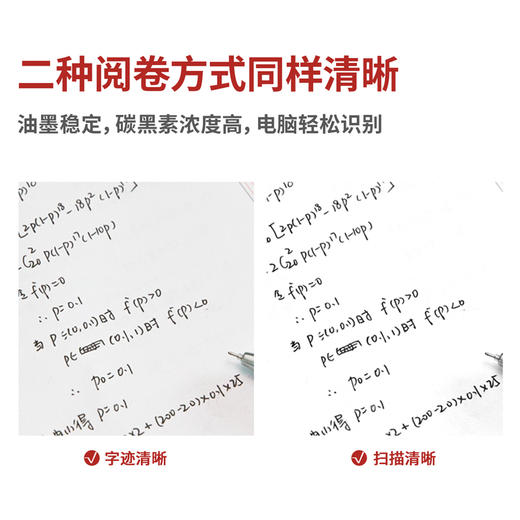 二种阅卷方式同样清晰
油墨稳定，碳黑素浓度高，电脑轻松识别
[2p(1-p)¹⁸-18p²(1-p)¹⁷]
2C²₂₀ p(1-p)¹⁷(1-10p)
令f'(p)=0
∴ p=0.1
当 P=(0,0.1)时 f'(p)>0
p∈ (0.1,1)时 f'(p)<0
∴ p₀=0.1
得 p=0.1
×2+(200-20)×0.1×25
字迹清晰
[2p(1-p)¹⁸-18p²(1-p)¹⁷]
2C²₂₀ p(1-p)¹⁷(1-10p)
令f'(p)=0
∴ p=0.1
当 P=(0,0.1)时 f'(p)>0
p∈ (0.1,1)时 f'(p)<0
∴ p₀=0.1
得 p=0.1
×2+(200-20)×0.1×25
扫描清晰